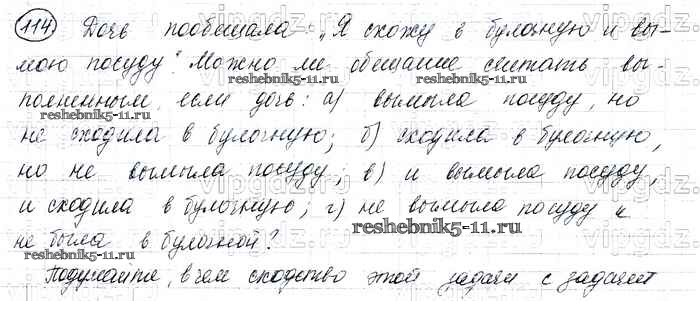 114 Дочь пообещала: „Я схожу в булочную и вы-
мою посуду". Можно ли обещание считать вы-
полненным, если дочь: а) вымыла посуду, но
не сходила в булочную; б) сходила в булочную,
но не вымыла посуду; в) и вымыла посуду,
и сходила в булочную; г) не вымыла посуду и
не была в булочной?
Подумайте, в чем сходство этой задачи с задачей
reshebnik5-11.ru
reshebnik5-11.ru
reshebnik5-11.ru
reshebnik5-11.ru